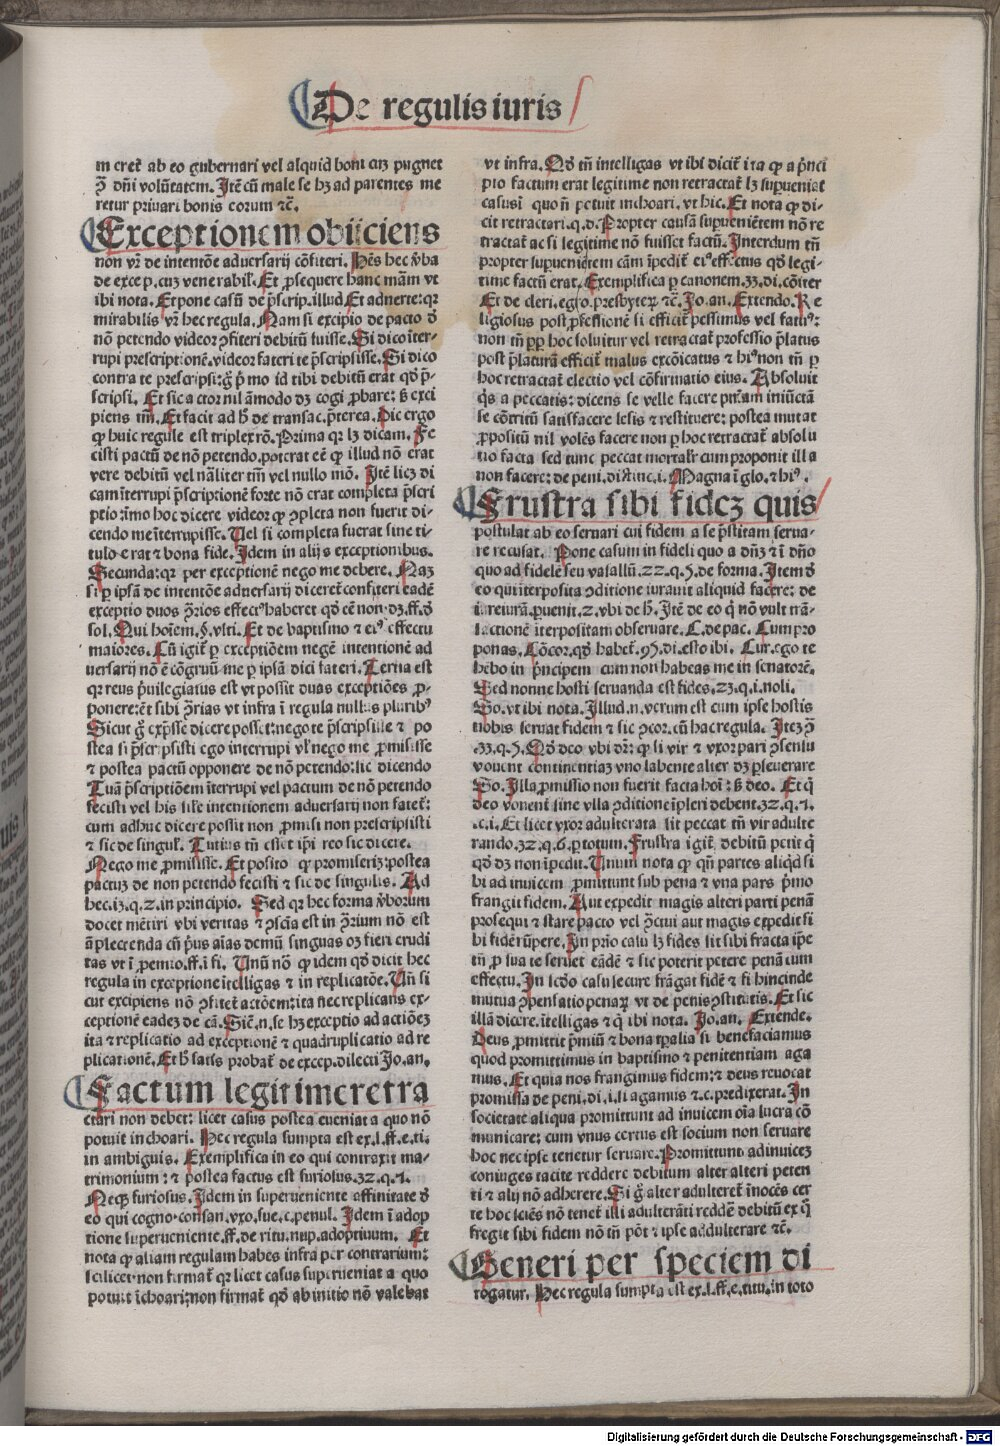 De regulis iuris
m cret̄ ab eo gubernari vel alquid boni cuꝫ pugnet
ꝯ̄ dn̄i volūtatem. Itē cū male se hꝫ ad parentes me
retur priuari bonis eorum ⁊c̄.
Exceptionem obijciens
non vr̄ de intentōe aduersarij cōfiteri.
ibi nota. Et pone casū de p̄scrip. illud Et aduerte: qꝛ
mirabilis vr̄ hec regula. Nam si excipio de pacto ꝺ̄
nō petendo videor ꝯfiteri debitū fuisse. Si dico īter-
rupi prescriptionē. videor fateri te p̄scripsisse. Si dico
contra te prescripsi: g̊ p̄mo id tibi debitū erat qꝺ̄ p̄-
scripsi. Et sic actor nil āmodo dꝫ cogi ꝓbare: ß exci
piens tm̄. Et facit ad h̄ de transac. p̄terea. Dic ergo
ꝙ huic regule est triplex rō. Prima qꝛ lꝫ dicam. Fe
cisti pactū de nō petendo. poterat eē ꝙ illud nō erat
vere debitū vel nāliter tm̄ vel nullo mō. Itē licꝫ di
cam īterrupi p̄scriptionē forte nō erat completa p̄scri
ptio: īmo hoc dicere videor ꝙ ꝯpleta non fuerit di-
cendo me īterrupisse. Uel si completa fuerat sine ti-
tulo erat ⁊ bona fide. Idem in alijs exceptionibus.
Secunda: qꝛ per exceptionē nego me debere. Naꝫ
si ꝑ ipsā de intentōe aduersarij diceret̄ confiteri eadē
exceptio duos ꝯ̄rios effectꝰ haberet qꝺ̄ eē non dꝫ. ff. ꝺ̄
sol. Qui hoīem. §. vlti. Et de baptismo ⁊ eiꝰ effectu
maiores. Cū igit̄ ꝑ exceptiōem negē intentionē ad
uersarij nō ē cōgruū me ꝑ ipsā dici fateri. Tertia est
qꝛ reus p̄uilegiatus est vt possit duas exceptiōes ꝓ-
ponere: et̄ sibi ꝯ̄rias vt infra ī regula nullus pluribꝰ
Sicut g̊ exp̄sse dicere posset: nego te p̄scripsisse ⁊ po
stea si p̄scripsisti ego interrupi vl̓ nego me ꝓmisisse
⁊ postea pactū opponere de nō petendo: sic dicendo
Tuā p̄scriptiōem īterrupi vel pactum de nō petendo
fecisti vel his sil̓e intentionem aduersarij non fatet̄:
cum adhuc dicere possit non ꝓmisi non prescripsisti
⁊ sic de singul̓. Tutius tn̄ esset ip̄i reo sic dicere.
Nego me ꝓmisisse. Et posito ꝙ promiseriꝫ: postea
pactuꝫ de non petendo fecisti ⁊ sic de singulis. Ad
hec. iꝫ. q. 2. in principio. Sed qꝛ hec forma v̄borum
docet mētiri vbi veritas ⁊ ꝯsciā est in ꝯ̄rium nō est
āplectenda cū p̄us aīas demū singuas oꝫ fieri erudi
tas vt ī ꝓemio. ff. ī fi. Unū nō ꝙ idem qꝺ̄ dicit hec
regula in exceptione ītelligas ⁊ in replicatōe. Un̄ si
cut excipiens nō ꝯfitet̄ actōem: ita nec replicans ex-
ceptionē eadeꝫ de cā. Sic̄. n. se hꝫ exceptio ad actiōeꝫ
ita ⁊ replicatio ad exceptionē ⁊ quadruplicatio ad re
plicationē. Et h̄ satis probat̄ de excep. dilecti Jo. an.
Factum legitime retra
ctari non debet: licet casus postea eueniat a quo nō
potuit inchoari. Hec regula sumpta est ex. l. ff. e. ti.
in ambiguis. Exemplifica in eo qui contraxit ma-
trimonium: ⁊ postea factus est furiosus. 32. q. 7.
Neqꝫ furiosus. Idem in superueniente affinitate ꝺ̄
eo qui cogno. consan. vxo. sue. c. penul. Idem ī adop
tione superueniente. ff. de ritu. nup. adoptiuum. Et
nota ꝙ aliam regulam habes infra per contrarium:
scilicet non firmat̄ qꝛ licet casus superueniat a quo
potuit īchoari: non firmat̄ qꝺ̄ ab initio nō valebat
vt infra. Qꝺ̄ tn̄ intelligas vt ibi dicit̄ ita ꝙ a p̄nci
pio factum erat legitime non retractat̄ lꝫ supueniat
casus ī quo n̄ potuit inchoari. vt hic. Et nota ꝙ di-
cit retractari. q. d. Propter causā supueniētem nō re
tractat̄ ac si legitime nō fuisset factū. Interdum tn̄
propter supuenientem cām īpedit̄ eiꝰ effectus qꝺ̄ legi-
time factū erat. Exemplifica ꝑ canonem. 33. di. cōiter
Et de cleri. egro. presbyteꝝ ⁊c̄. Jo. an. Extendo. Re
ligiosus post ꝓfessionē si efficit̄ pessimus vel fatuꝰ:
non tn̄ ꝓp̄ hoc soluitur vel retractat̄ professio p̄latus
post p̄laturā efficit̄ malus excōicatus ⁊ hiꝰ non tn̄ ꝑ
hoc retractat̄ electio vel cōfirmatio eius. Absoluit
q̄s a peccatis: dicens se velle facere pn̄iam iniūctā
se cōtritū satisfacere lesis ⁊ restituere: postea mutat
ꝓpositū nil volēs facere non ꝑ hoc retractat̄ absolu
tio facta sed tunc peccat mortalr̄ cum proponit illa
non facere: de peni. distinc. i. Magna ī glo. ⁊ hiꝰ.
Frustra sibi fideꝫ quis
postulat ab eo seruari cui fidem a se p̄stitam serua-
re recusat. Pone casum in fideli quo a dn̄o ⁊ ī dn̄o
quo ad fidelē seu vasallū. 22. q. 5. de forma. Item ꝺ̄
eo qui īterposita ꝯditione iurauit aliquid facere: de
iureiurā. puenit. 2. vbi de h̄. Itē de eo q̄ nō vult trā-
sactionē īterpositam obseruare. C. de pac. Cum pro
ponas. Cōcor. qꝺ̄ habet̄. 95. di. esto ibi. Cur. ego te
hēbo in p̄ncipem cum non habeas me in senatorē.
Sed nonne hosti seruanda est fides. 23. q. i. noli.
So. vt ibi nota. Illud. n. verum est cum ipse hostis
nobis seruat fidem ⁊ sic ꝯcor. cū hac regula. Iteꝫ ꝯ̄
.33. q. 5. Qꝺ̄ deo vbi dr̄: ꝙ si vir ⁊ vxor pari ꝯsensu
vouent continentiaꝫ vno labente alter dꝫ ꝑseuerare
So. Illa ꝓmissio non fuerit facta hoī: ß deo. Et q̄
deo vouent sine vlla ꝯditione īpleri debent. 32. q. 1.
.c. i. Et licet vxor adulterata sit peccat tn̄ vir adulte
rando. 32. q. 6. ꝑ totum. Frustra igit̄ debitū petit q̄
qꝺ̄ dꝫ non īpedit. Unum nota ꝙ qn̄ partes aliqd̄ si
bi ad inuicem ꝓmittunt sub pena ⁊ vna pars p̄mo
frangit fidem. Aut expedit magis alteri parti penā
prosequi ⁊ stare pacto vel ꝯ̄ctui aut magis expedit si
bi fidē rūpere. In prio casu lꝫ fides sit sibi fracta ip̄e
tn̄ ꝓ sua te seruet eādē ⁊ sic poterit petere penā cum
effectu. In scd̄o casu secure frāgat fidē ⁊ fi hincinde
mutua ꝯpensatio penaꝝ vt de penis ꝯstitutis. Et sic
illā dicere. ītelligas ⁊ q̄ ibi nota. Jo. an. Extende.
Deus ꝓmittit p̄miū ⁊ bona tꝑalia si benefaciamus
quod promittimus in baptismo ⁊ penitentiam aga
mus. Et quia nos frangimus fidem: ⁊ deus reuocat
promissa de peni. di. i. si agamus ⁊. c. predixerat. In
societate aliqua promittunt ad inuicem oīa lucra cō
municare: cum vnus certus est socium non seruare
hoc nec ipse tenetur seruare. Promittunt adinuiceꝫ
coniuges tacite reddere debitum alter alteri peten
ti ⁊ alij nō adherere. Si g̊ alter adulteret̄ īnocēs cer
te hoc sciēs nō tenet̄ illi adulterāti reddē debitū ex q̊
fregit sibi fidem nō tn̄ pōt ⁊ ipse addulterare ⁊c̄.
Generi per speciem di
rogatur. Hec regula sumpta est ex. l. ff. e. titu. in toto
Digitalisierung gefördert durch die Deutsche Forschungsgemeinschaft - DFG